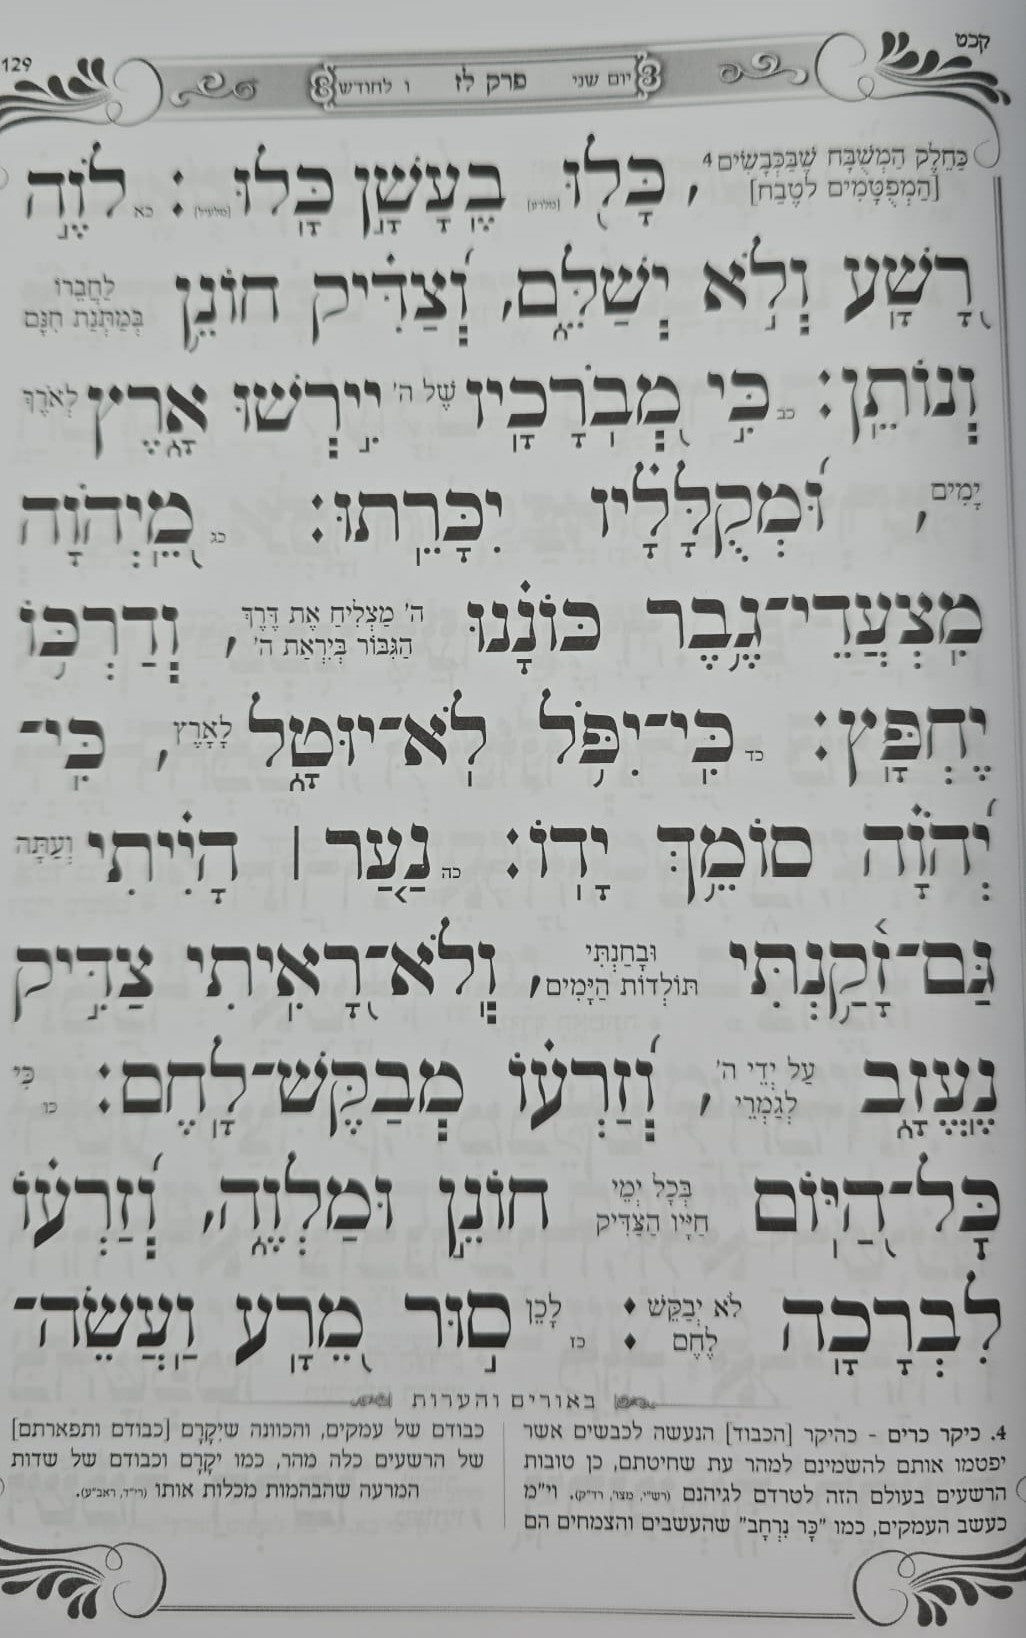 129 יום שני פרק לז ו לחודש קכט
כַּחֵלֶק הַמְשֻׁבָּח שֶׁבַּכְּבָשִׂים 4
[הַמְפֻטָּמִים לְטֶבַח]
, כָּל֖וּ [מלרע] בֶעָשָׁ֣ן כָּֽלוּ [מלעיל] : כא לֹוֶ֣ה
רָ֭שָׁע וְלֹ֣א יְשַׁלֵּ֑ם, וְ֝צַדִּ֗יק חוֹנֵ֥ן לַחֲבֵרוֹ
בְּמַתְּנַת חִנָּם
וְנוֹתֵֽן: כב כִּ֣י מְ֭בֹרָכָיו שֶׁל ה' יִ֣ירְשׁוּ אָ֑רֶץ לְאֹרֶךְ
יָמִים , וּ֝מְקֻלָּלָ֗יו יִכָּרֵֽתוּ: כג מֵ֭יְהוָה
מִֽצְעֲדֵי־גֶ֥בֶר כּוֹנָ֗נוּ ה' מַצְלִיחַ אֶת דֶּרֶךְ
הַגִּבּוֹר בְּיִרְאַת ה' , וְדַרְכּ֥וֹ
יֶחְפָּֽץ: כד כִּֽי־יִפֹּ֥ל לֹֽא־יוּטָ֑ל לָאָרֶץ , כִּֽי־
יְ֝הוָ֗ה סוֹמֵ֥ךְ יָדֽוֹ: כה נַ֤עַר | הָיִ֗יתִי וְעַתָּה
גַּם־זָ֫קַ֥נְתִּי וּבָחַנְתִּי
תּוֹלְדוֹת הַיָּמִים , וְֽלֹא־רָ֭אִיתִי צַדִּ֣יק
נֶעֱזָ֑ב עַל יְדֵי ה'
לְגַמְרֵי , וְ֝זַרְע֗וֹ מְבַקֶּשׁ־לָֽחֶם: כו כִּי
כָּל־הַ֭יּוֹם בְּכָל יְמֵי
חַיָּיו הַצַּדִּיק חוֹנֵ֣ן וּמַלְוֶ֑ה, וְ֝זַרְע֗וֹ
לִבְרָכָֽה לֹא יְבַקֵּשׁ
לֶחֶם : כז לָכֵן ס֣וּר מֵ֭רָע וַעֲשֵׂה־
באורים והערות
4. כיקר כרים - כהיקר [הכבוד] הנעשה לכבשים אשר
יפטמו אותם להשמינם למהר עת שחיטתם, כן טובות
הרשעים בעולם הזה לטרדם לגיהנם (רש"י, מצו', רד"ק). וי"מ
כעשב העמקים, כמו "כַּר נִרְחָב" שהעשבים והצמחים הם
כבודם של עמקים, והכוונה שיְקָרָם [כבודם ותפארתם]
של הרשעים כלה מהר, כמו יְקָרָם וכבודם של שדות
המרעה שהבהמות מכלות אותו (רי"ד, ראב"ע).